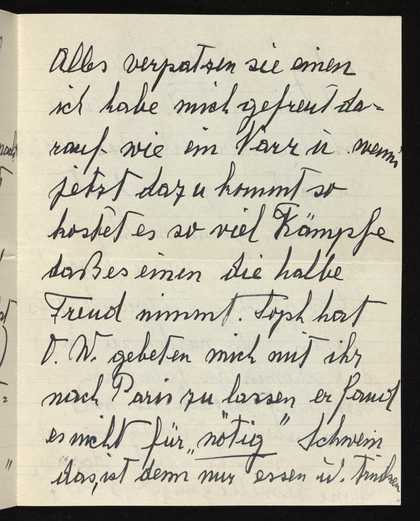 Alles verpatzen sie einen
ich habe mich gefreut da-
rauf wie ein Narr u. wenns
jetzt dazu kommt so
kostet es so viel Kämpfe
daß es einen die halbe
Freud nimmt. Soph hat
O. W. gebeten mich mit ihr
nach Paris zu lassen er fand
es nicht für „nötig" Schwein
das, ist denn nur essen u. trinken